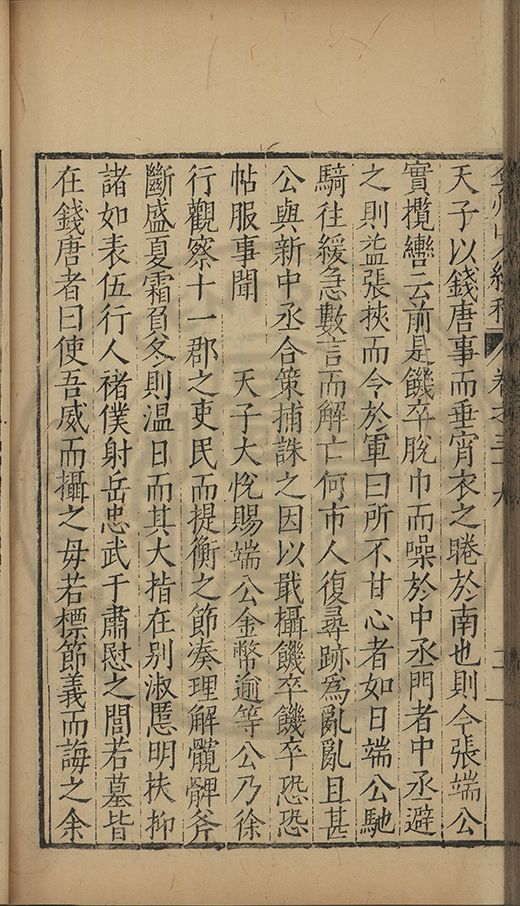 天子以錢唐事而垂宵衣之睠於南也則今張端公
實攬轡云前是饑卒脫巾而噪於中丞門者中丞避
之則益張挾而令於軍曰所不甘心者如日端公馳
騎往緩急數言而解亡何市人復尋跡爲亂亂且甚
公與新中丞合策捕誅之因以戢攝饑卒饑卒恐恐
帖服事聞　天子大悅賜端公金幣逾等公乃徐
行觀察十一郡之吏民而提衡之節凑理解髖髀斧
斷盛夏霜負冬則温日而其大指在别淑慝明扶抑
諸如表伍行人褚僕射岳忠武于肅慰之閭若墓皆
在錢唐者曰使吾威而攝之毋若標節義而誨之余